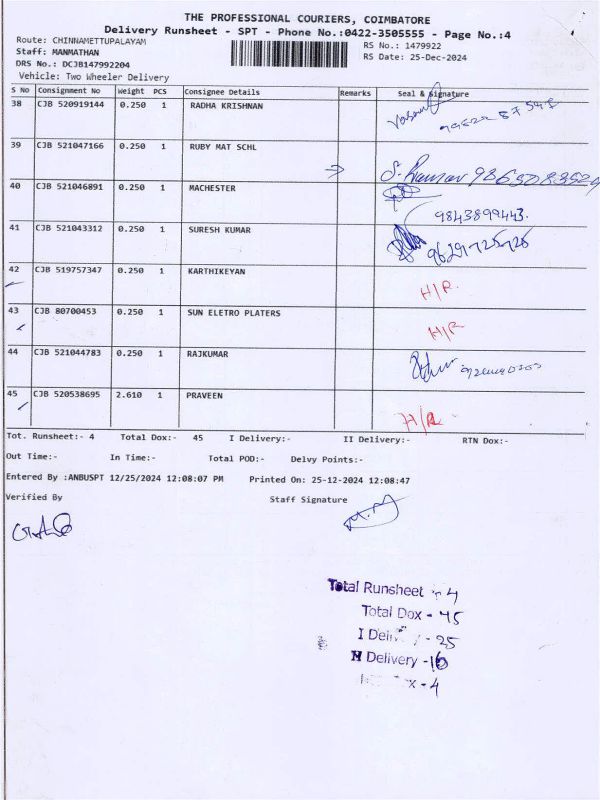 THE PROFESSIONAL COURIERS, COIMBATORE
Delivery Runsheet - SPT - Phone No.:0422-3505555 - Page No.:4
Route: CHINNAMETTUPALAYAM RS No.: 1479922
Staff: MANMATHAN RS Date: 25-Dec-2024
DRS No.: DCJB147992204
Vehicle: Two Wheeler Delivery
S No Consignment No Weight PCS Consignee Details Remarks Seal & Signature
38 CJB 520919144 0.250 1 RADHA KRISHNAN
39 CJB 521047166 0.250 1 RUBY MAT SCHL
40 CJB 521046891 0.250 1 MACHESTER 9843899443.
41 CJB 521043312 0.250 1 SURESH KUMAR 9629725726
42 CJB 519757347 0.250 1 KARTHIKEYAN H/R.
43 CJB 80700453 0.250 1 SUN ELETRO PLATERS H/R
44 CJB 521044783 0.250 1 RAJKUMAR
45 CJB 520538695 2.610 1 PRAVEEN H/R
Tot. Runsheet:- 4 Total Dox:- 45 I Delivery:- II Delivery:- RTN Dox:-
Out Time:- In Time:- Total POD:- Delvy Points:-
Entered By :ANBUSPT 12/25/2024 12:08:07 PM Printed On: 25-12-2024 12:08:47
Verified By Staff Signature
Total Runsheet - 4
Total Dox - 45
I Deli - 25
II Delivery - 16
x - 4